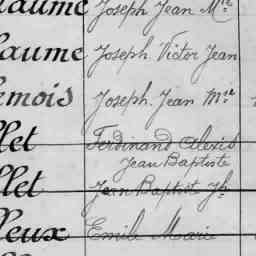 laume Joseph Jean Mie
laume Joseph Victor Jean
emois Joseph Jean Mie
llet Ferdinand Alexis
Jean Baptiste
llet Jean Baptist
lleux Emile Marie